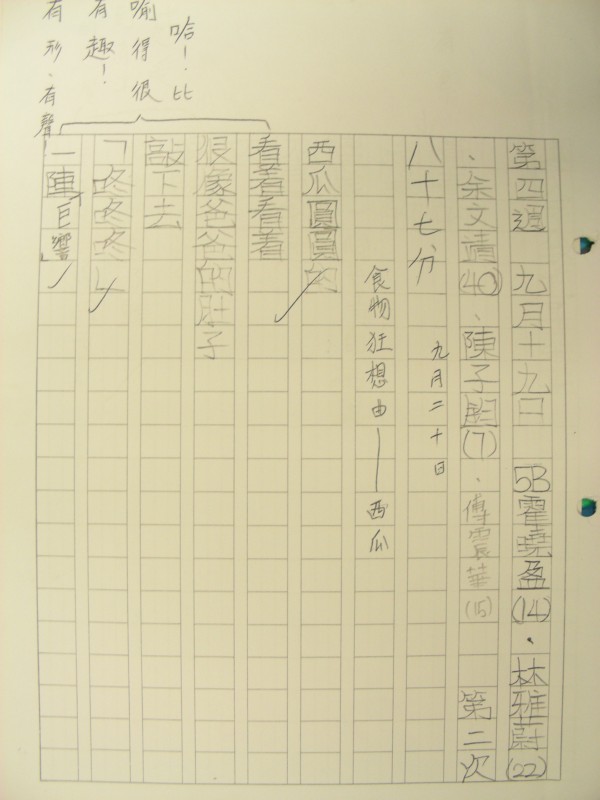 第四週 九月十九日 5B霍曉盈(14)．林雅蔚(22)
、余文遠(40)、陳子朗(7)、傅震華(15) 第二次
八十七分 九月二十日
食物狂想曲——西瓜
西瓜圓圓的
看着看着
很像爸爸的肚子
敲下去
「咚咚咚」
一陣巨響
哈！比
喻得很
有趣！
有形、有聲